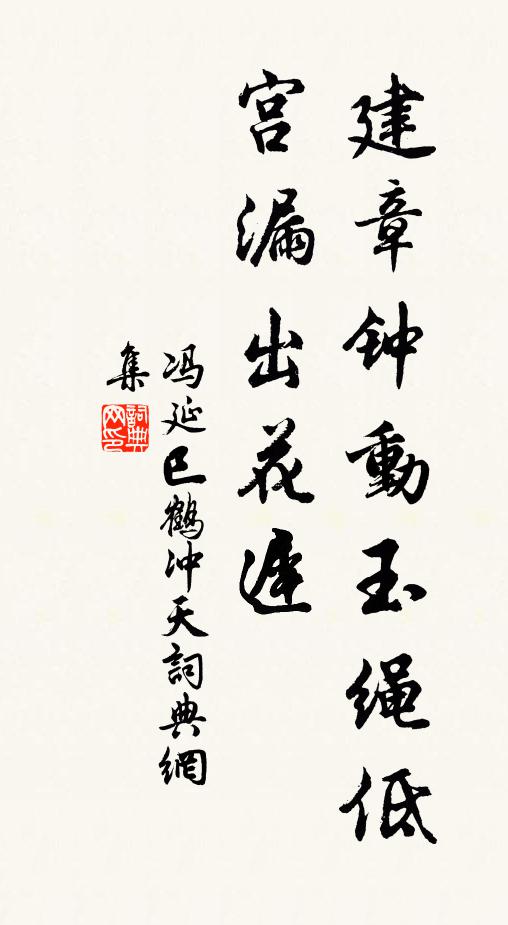 建章钟動玉绳低
宫漏出花遲
冯延巳鶴冲天詞典網
集
詞典网印